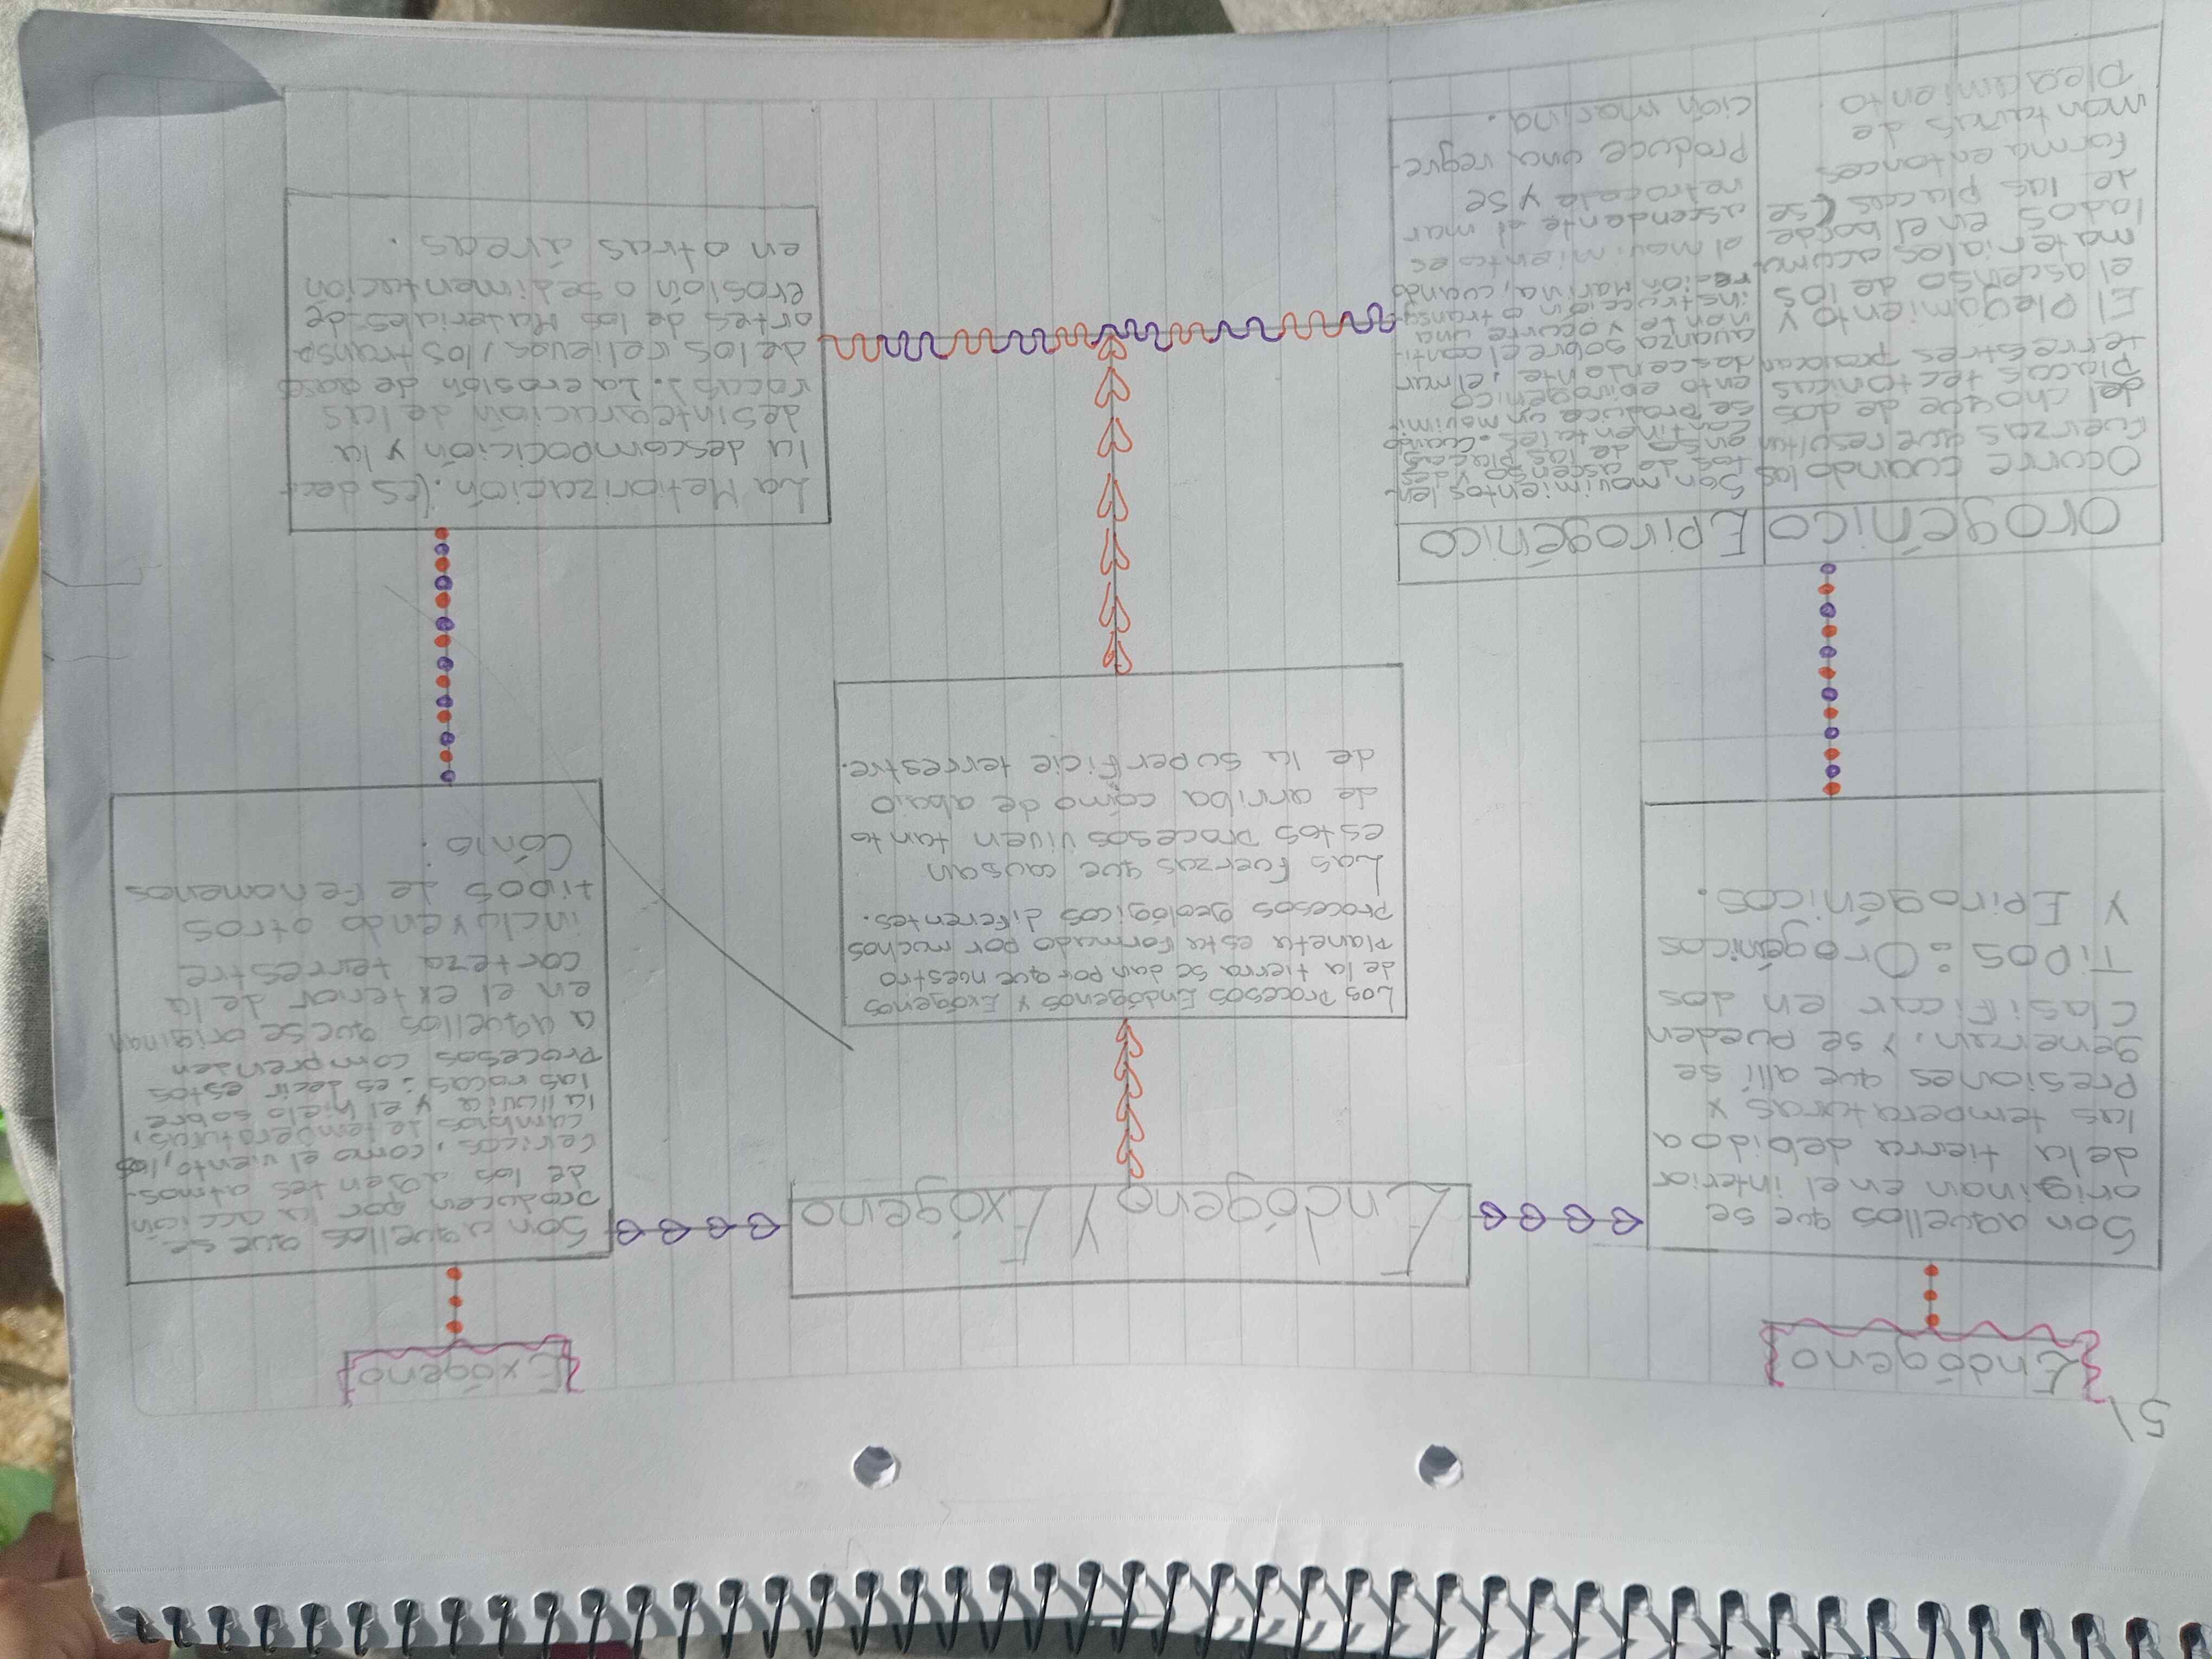 5)
Endógeno
Son aquellos que se
originan en el interior
de la tierra debido a
las temperaturas y
Presiones que allí se
generan, y se pueden
clasificar en dos
Tipos: Orogénicos
Y Epirogénicos.
Orogénico
Ocurre cuando las
fuerzas que resultan
del choque de dos
Placas tectonicas
terrestres provocan
El Plegamiento y
el ascenso de los
materiales acumu
lados en el borde
de las placas (se
forma entonces
montañas de
Plegamiento
Epirogénico
Son movimientos len-
tos de ascenso y des
enso de las placas
continentales. Cuando
se produce un movimi-
ento epirogénico
descendente, el mar
avanza sobre el conti-
nonto y ocurre una
instrucción o transg-
reción Marina, cuando
el movimiento es
ascendente el mar
retrocede y se
Produce una regre-
ción marina.
Endógeno Y Exógeno
Los procesos Endógenos y Exógenos
de la tierra se dan por que nuestro
Planeta esta formado por muchos
Procesos geológicos diferentes.
Las fuerzas que causan
estos procesos viven tanto
de arriba cómo de abajo
de la superficie terrestre.
Exógeno
Son aquellos que se
producen por la acción
de los agentes atmos-
fericos, como el viento, los
cambios de temperaturas,
la lluvia y el hielo sobre
las rocas; es decir estos
Procesos comprenden
a aquellos que se originan
en el exterior de la
corteza terrestre
incluyendo otros
tipos de fenamenos
Cómo:
La Metiorización. (Es decir
la descompocición y la
desintegración de las
rocas). La erosión de
de los relieves, los transp
ortes de los Materiales de
erosión o sedimentación
en otras áreas.